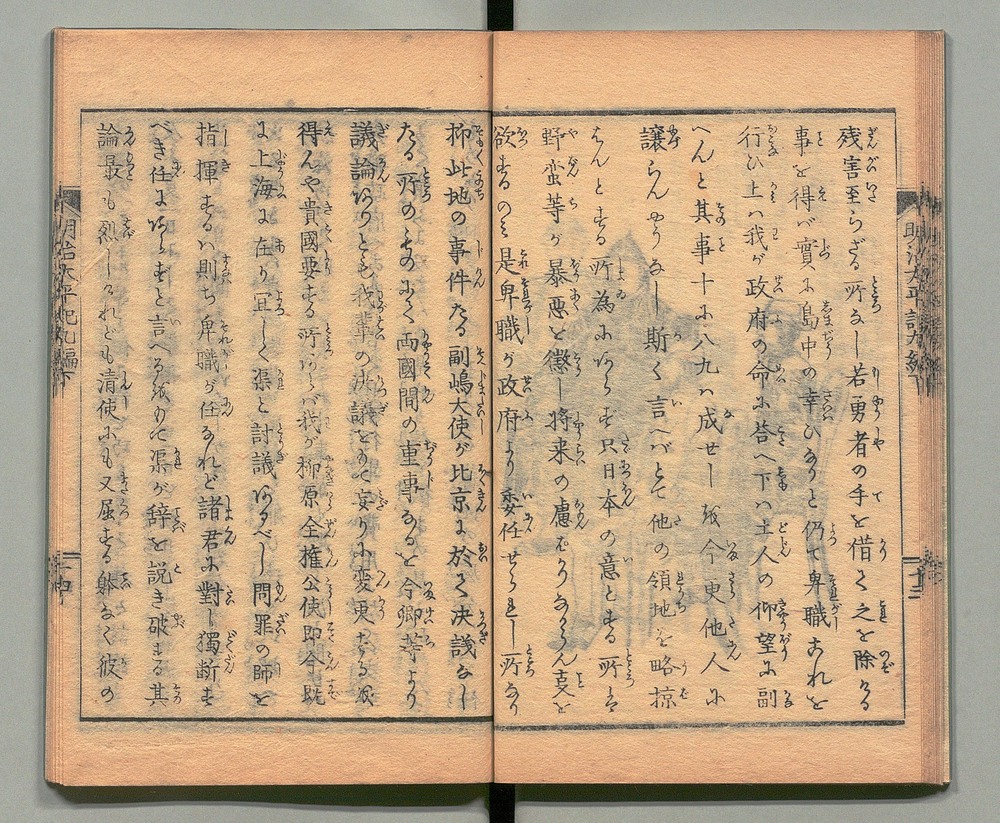 残害至らざる所なし若勇者の手を借て之を除る
事を得バ實に島中の幸ひなりと仍て卑職これを
行ひ上ハ我が政府の命に答へ下ハ土人の仰望に副
へんと其事十に八九ハ成せし を今更他人に
譲らんやうなし斯く言へバとて他の領地を略掠
せんとする所為にあらず只日本の意とする所は
野蛮等が暴悪を懲し将来の慮をなからん事を
欲するのミ是卑職が政府より委任せられし所なり
抑此地の事件たる副嶋大使が北京に於て決議なし
たる所のものにて両國間の重事なるを今卿等より
議論ありとも我輩の決議をもて妄りに変更する を
得んや貴國要する所あらバ我が柳原全権公使即今既
に上海に在り宜しく渠と討議あるべし問罪の師を
指揮するハ則ち卑職が任なれど諸君に對し獨断す
べき任にあらずと言へるをもて渠が辞を説き破る其
論最も烈しけれども清使にも又屈する躰なく彼の
明治太平記九編下
明治太平記九編下